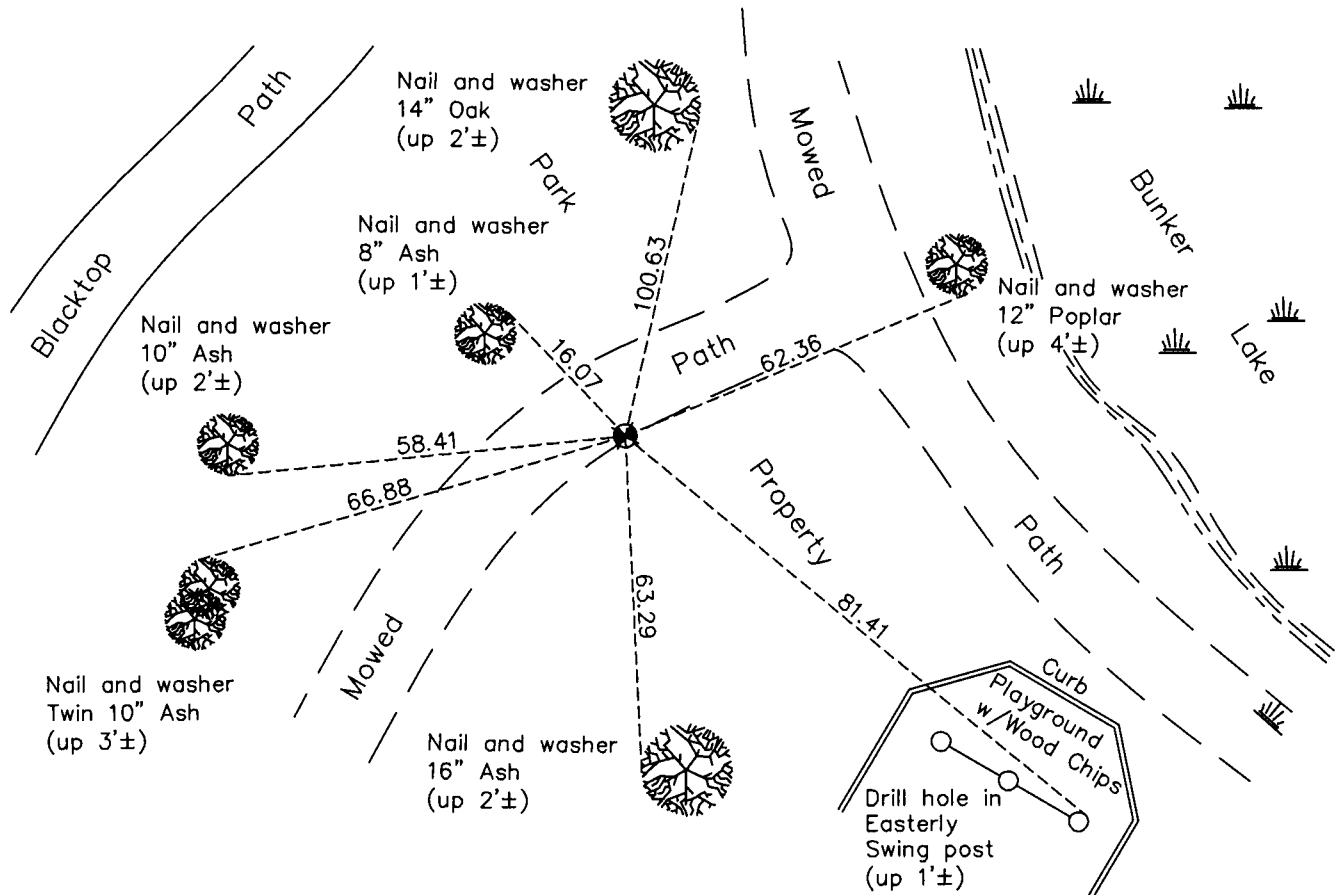 Path
Blacktop
Nail and washer
14" Oak
(up 2'±)
Park
Mowed
Bunker
Lake
Nail and washer
8" Ash
(up 1'±)
100.63
Nail and washer
12" Poplar
(up 4'±)
Nail and washer
10" Ash
(up 2'±)
16.07
Path
62.36
58.41
66.88
Property
Path
63.29
81.41
Mowed
Nail and washer
Twin 10" Ash
(up 3'±)
Nail and washer
16" Ash
(up 2'±)
Curb
Playground
w/Wood Chips
Drill hole in
Easterly
Swing post
(up 1'±)